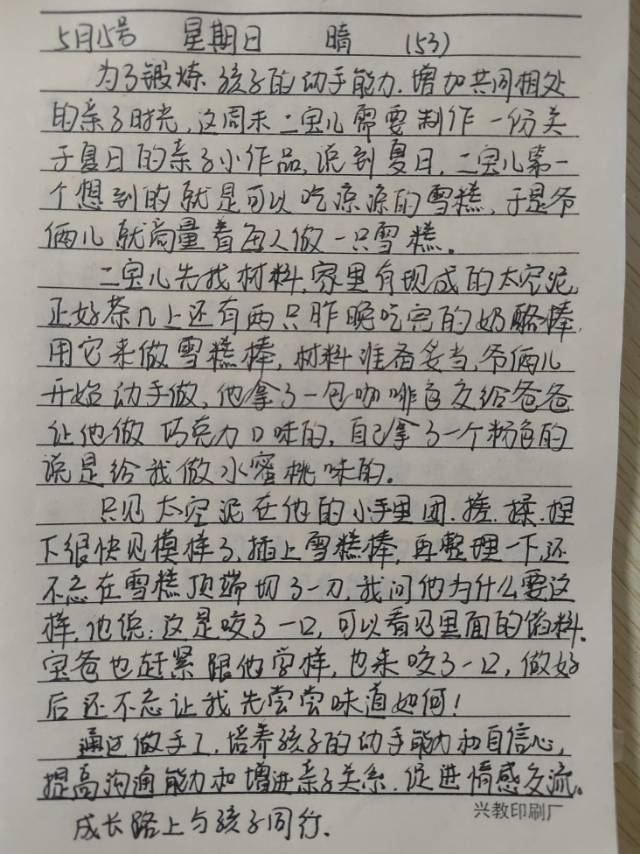 5月15号 星期日 晴 (53)
为了锻炼孩子的动手能力.增加共同相处
的亲子时光,这周末二宝儿需要制作一份关
于夏日的亲子小作品,说到夏日,二宝儿第一
个想到的就是可以吃凉凉的雪糕,于是爷
俩儿就商量着每人做一只雪糕。
二宝儿先找材料,家里有现成的太空泥,
正好茶几上还有两只昨晚吃完的奶酪棒,
用它来做雪糕棒,材料准备妥当,爷俩儿
开始动手做,他拿了一包咖啡色交给爸爸
让他做巧克力口味的,自己拿了一个粉色的
说是给我做水蜜桃味的。
只见太空泥在他的小手里团.搓.揉.捏
下很快见模样了,插上雪糕棒,再整理一下,还
不忘在雪糕顶端切了一刀,我问他为什么要这
样,他说:这是咬了一口,可以看见里面的馅料.
宝爸也赶紧跟他学样,也来咬了一口,做好
后还不忘让我先尝尝味道如何!
通过做手工,培养孩子的动手能力和自信心,
提高沟通能力和增进亲子关系.促进情感交流。
成长路上与孩子同行.
兴教印刷厂